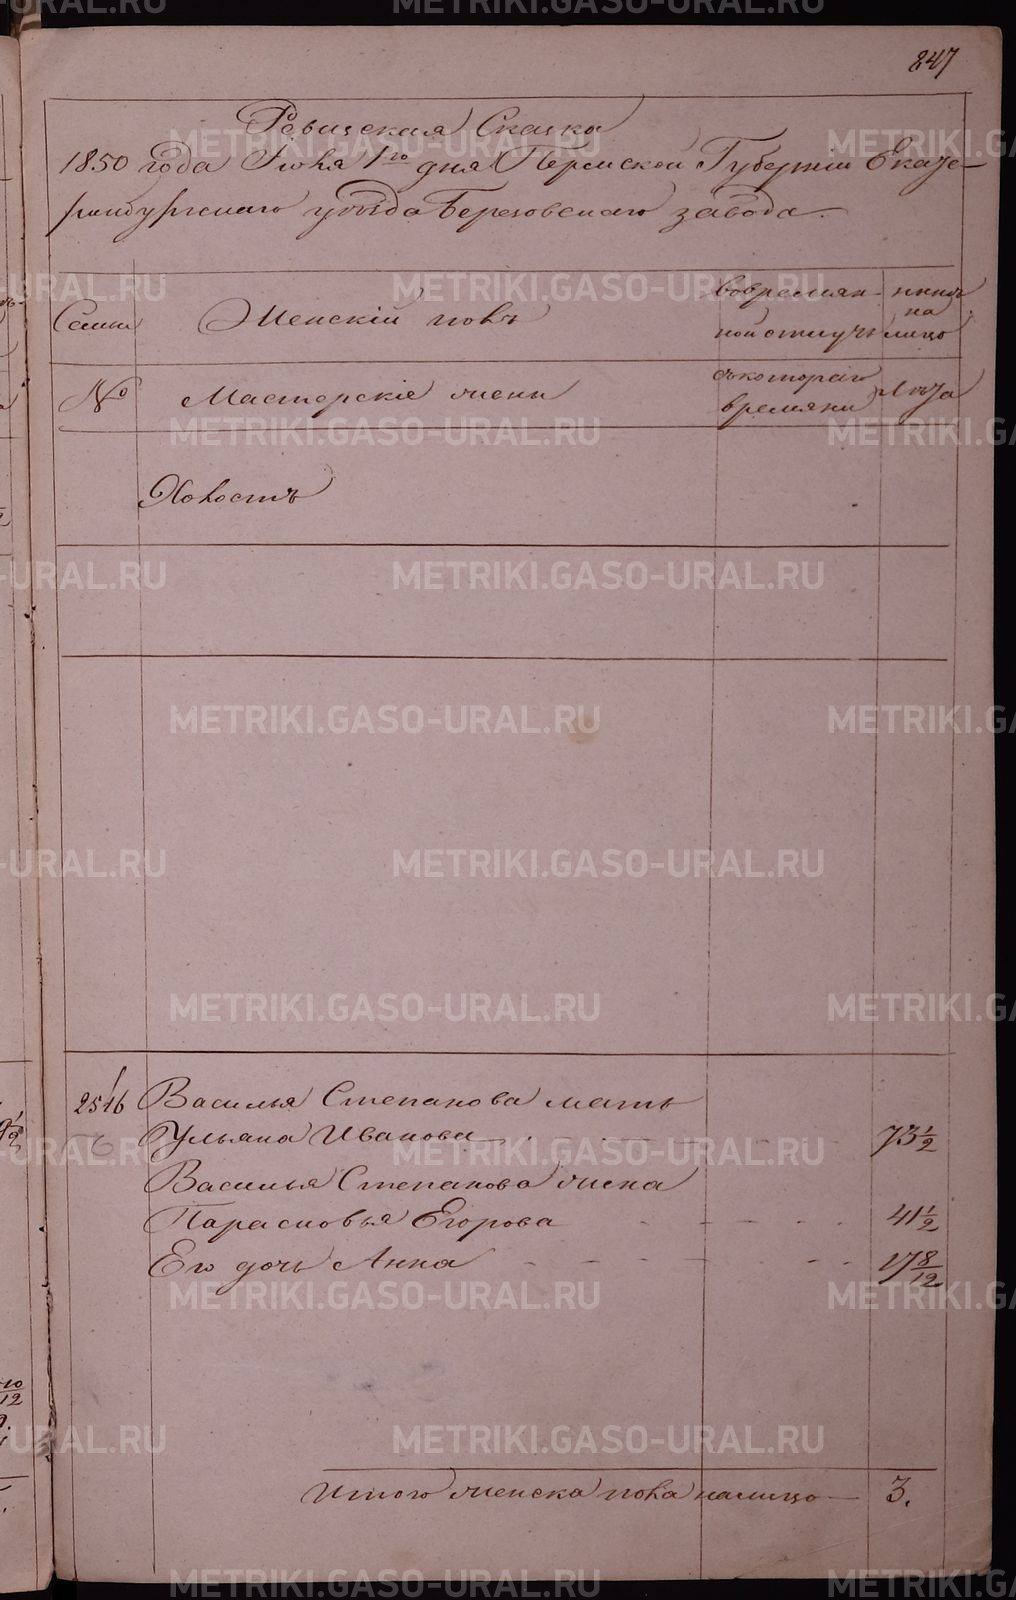 847
Ревизская Сказка
1850 года Июня 1го дня Пермской Губерніи Екате-
ринбургскаго уѣзда Березовскаго завода.
Семьи
Женскій полъ
вовремян-
ной отлучкѣ
нынѣ
на
лицо
№
Мастерскіе жены
съ котораго
времяни
Лѣта
Холостъ
25/16
Василья Степанова мать
Ульяна Иванова
73 1/2
Василья Степанова жена
Парасковья Егорова
41 1/2
Его дочь Анна
17 8/12
Итого женска пола налицо
3.
METRIKI.GASO-URAL.RU